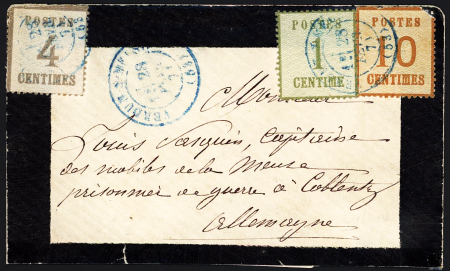 POSTES
4
CENTIMES
POSTES
1
CENTIMES
POSTES
10
CENTIMES
VERDUN-S-MEUSE
28
(53)
Monsieur
Louis Janguin, Capitaine
des mobiles de la Meuse
prisonnier de guerre à Coblentz
Allemagne